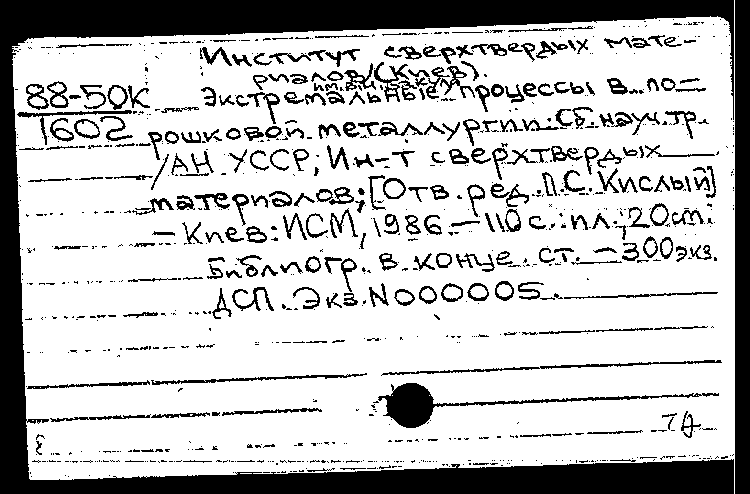 Институт сверхтвердых мате-
риалов (Киев).
им. В.Н. Бакуля
88-50К Экстремальные процессы в по-
1602 рошковой металлургии: Сб. науч. тр.
/АН УССР; Ин-т сверхтвердых
материалов; [Отв. ред. П.С. Кислый]
— Киев: ИСМ, 1986. — 110 с.: ил.; 20 см.
Библиогр. в конце ст. — 300 экз.
ДСП. Экз. N000005.